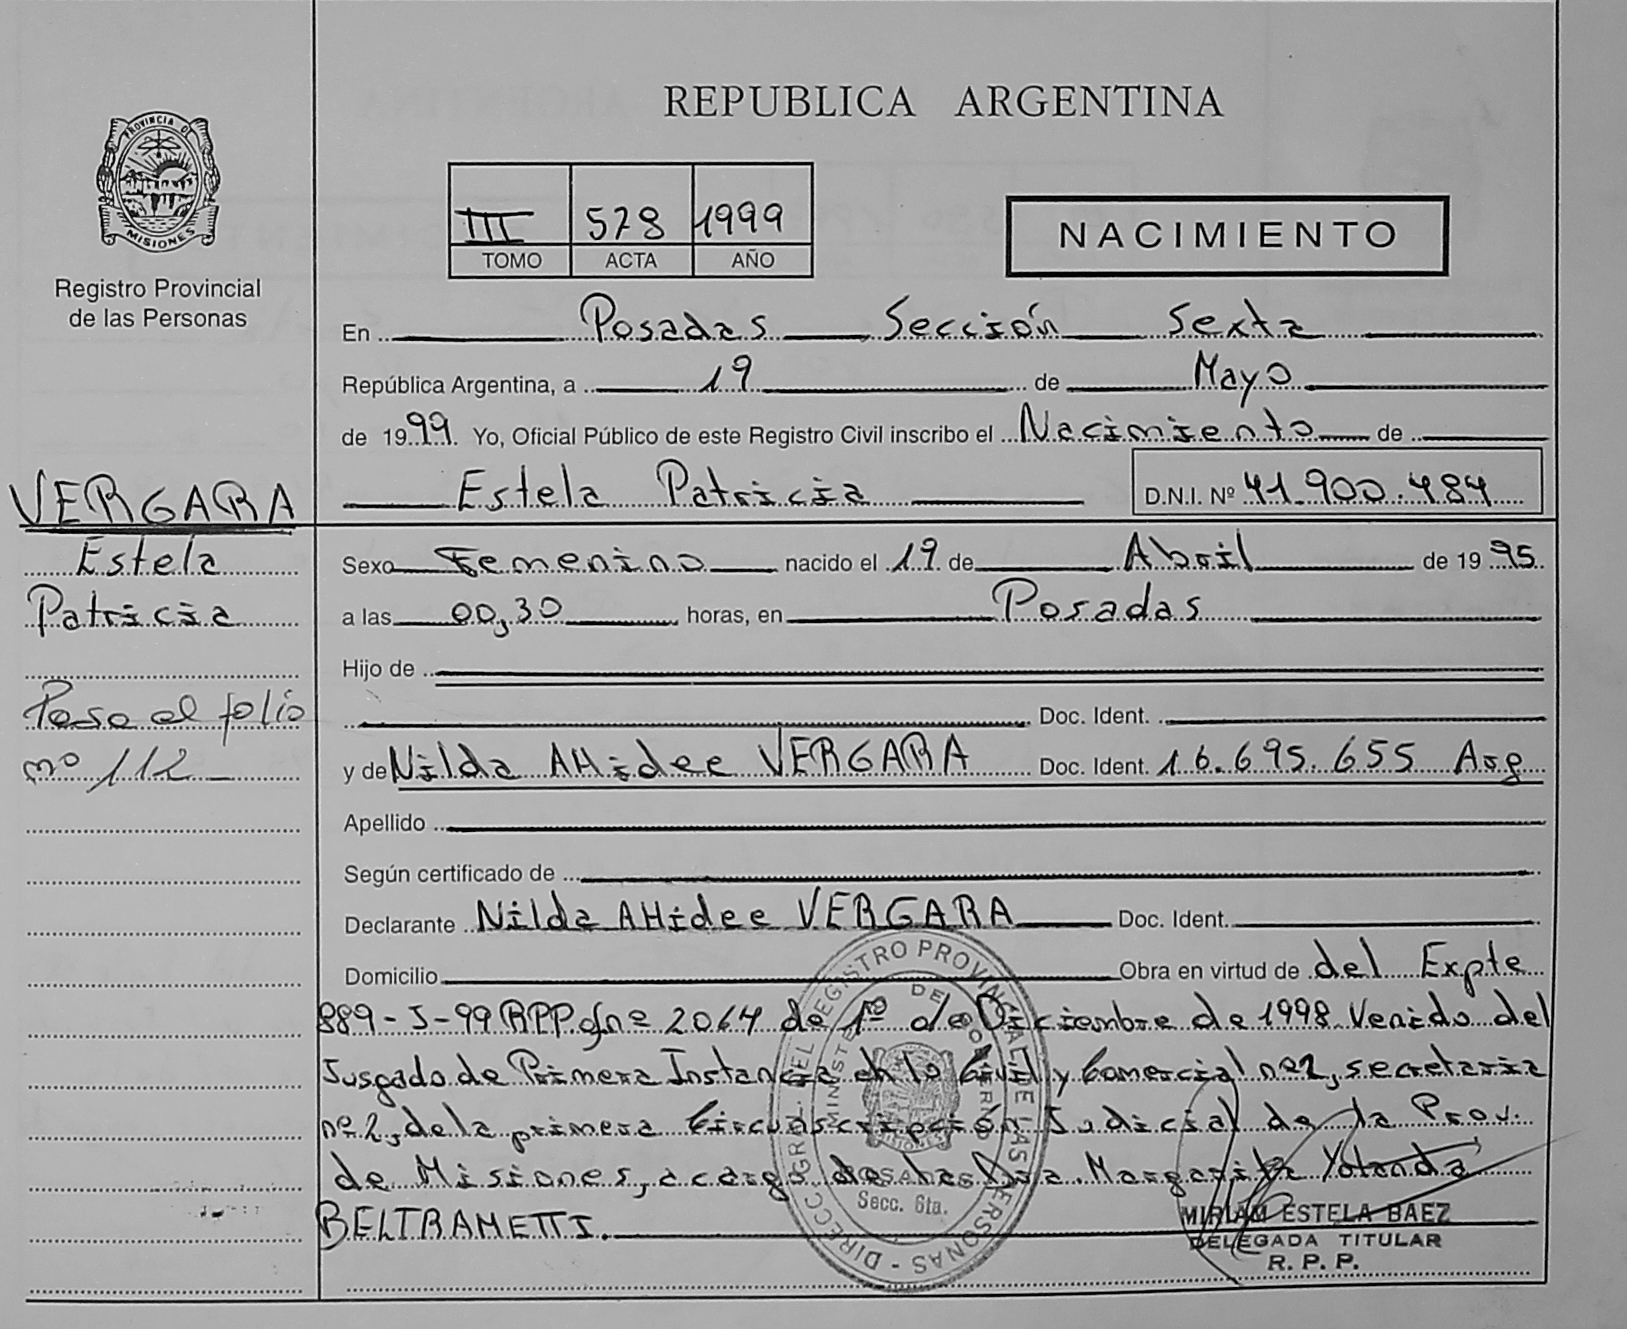 REPUBLICA ARGENTINA
PROVINCIA DE
MISIONES
Registro Provincial
de las Personas
III 578 1999
TOMO ACTA AÑO
NACIMIENTO
En Posadas Sección Sexta
República Argentina, a 19 de Mayo
de 1999. Yo, Oficial Público de este Registro Civil inscribo el Nacimiento de
Estela Patricia D.N.I. Nº 41.900.484
VERGARA
Estela
Patricia
Pasa al folio
nº 112
Sexo Femenino nacido el 19 de Abril de 1995.
a las 00,30 horas, en Posadas
Hijo de
Doc. Ident.
y de Nilda AHidee VERGARA Doc. Ident. 16.695.655 Arg
Apellido
Según certificado de
Declarante Nilda AHidee VERGARA Doc. Ident.
Domicilio Obra en virtud de del Expte
889-J-99 RPP. of nº 2064 de 1º de Diciembre de 1998. Venido del
Jusgado de Primera Instancia en lo Civil y Comercial nº2, secretaria
nº2, de la primera Circunscripción Judicial de la Prov.
de Misiones, a cargo de la Dra. Margarita Yolanda
BELTRAMETTI.
DIRECC. GRAL. DEL REGISTRO PROVINCIAL DE LAS PERSONAS
MINISTERIO DE GOBIERNO
MISIONES
POSADAS
Secc. 6ta.
MIRIAM ESTELA BAEZ
DELEGADA TITULAR
R. P. P.